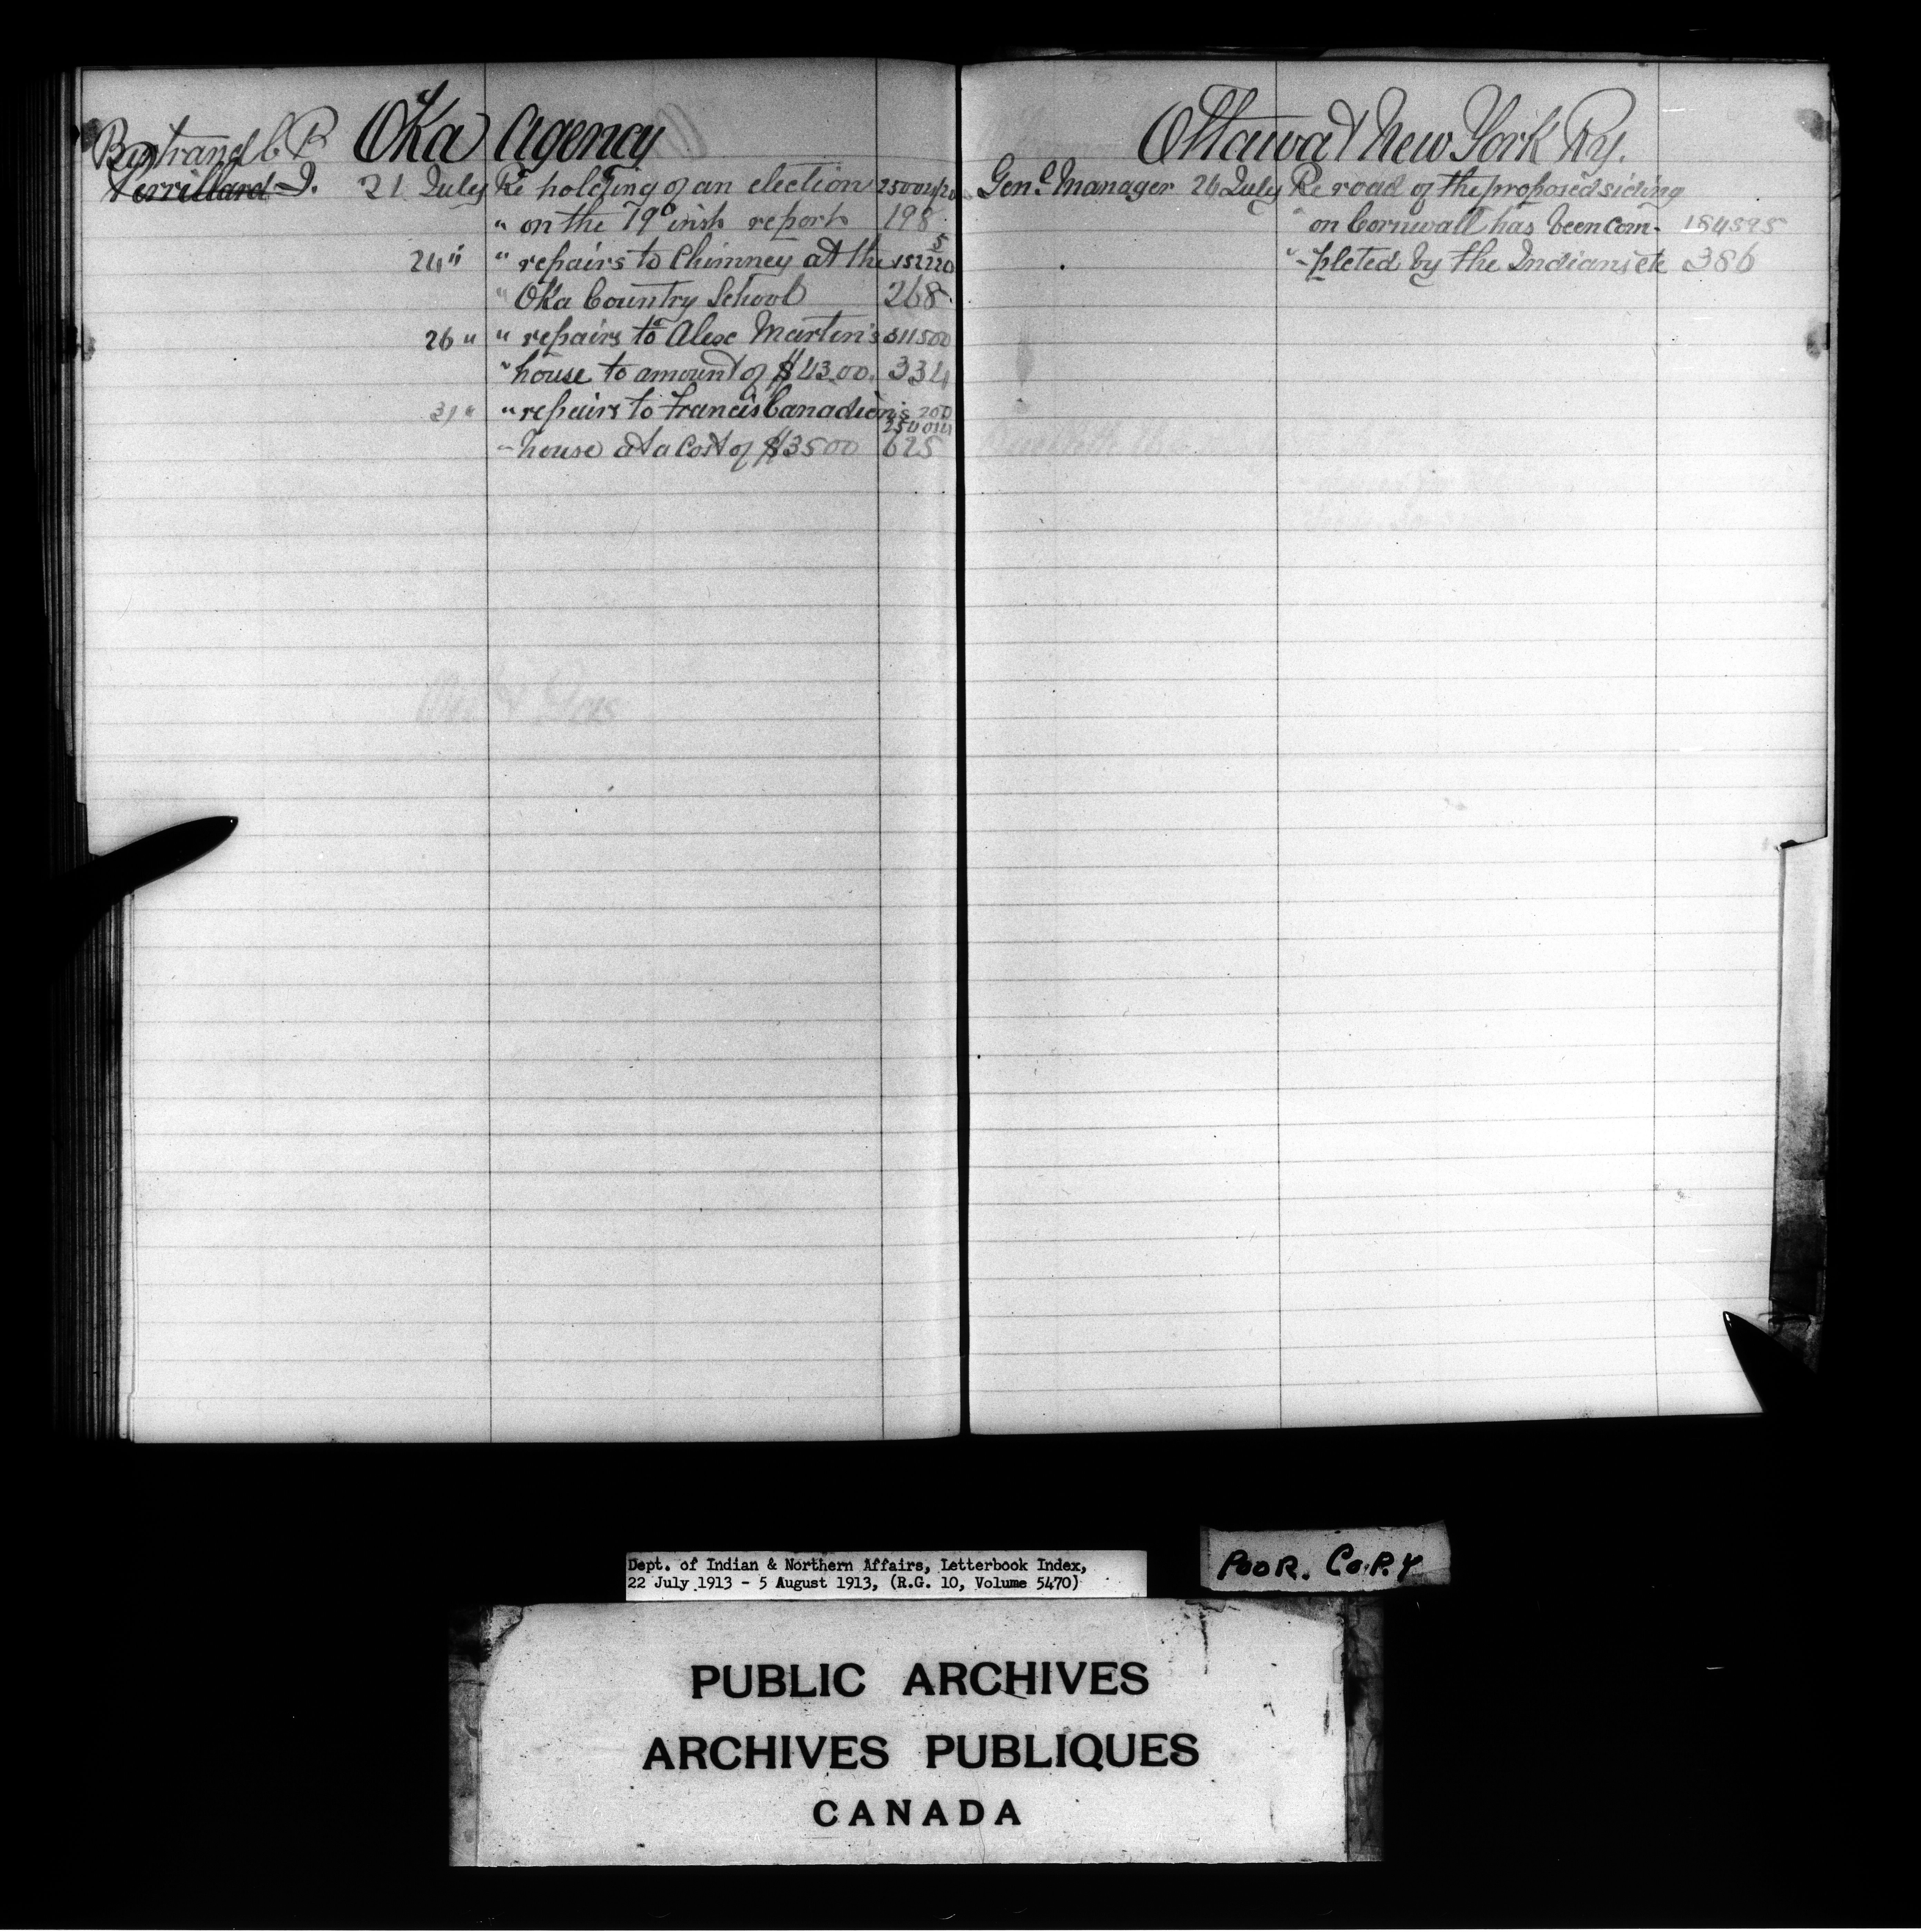 Oka Agency
Bertrand C B
Perrillard J.
21 July Re holding of an election
" on the report 198
24 " " repairs to Chimney at the
" Oka Country School 268
26 " " repairs to Alex Martin's 311500
" house to amount of $43.00. 334
31 " " repairs to Francis Canadien's 200
- house at a cost of $35 00 625
Ottawa & New York Ry.
Genl Manager 26 July Re road of the proposed siding
" on Cornwall has been com- 154595
" -pleted by the Indians etc 386
Dept. of Indian & Northern Affairs, Letterbook Index,
22 July 1913 - 5 August 1913, (R.G. 10, Volume 5470)
POOR. COPY
PUBLIC ARCHIVES
ARCHIVES PUBLIQUES
CANADA